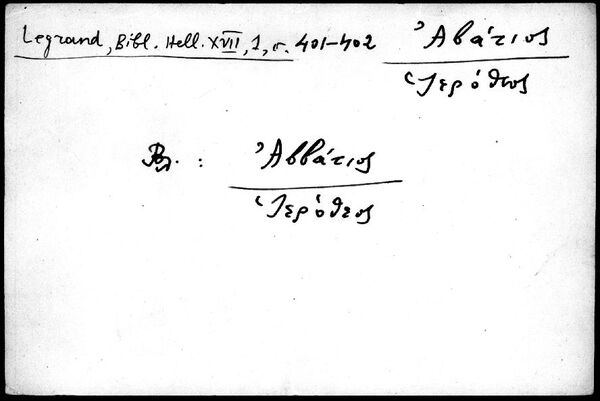 Legrand, Bibl. Hell. XVII, 1, σ. 401-402
Ἀβάτιος
Ἱερόθεος
Βλ. : Ἀββάτιος
Ἱερόθεος